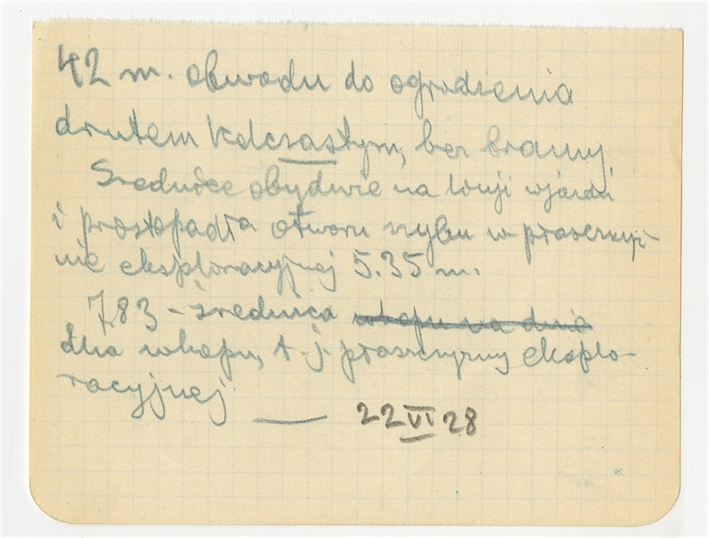 42 m. obwodu do ogrodzenia
drutem kolczastym, bez bramy.
Średnice obydwie na linji wjazdu
i prostopadła otworu szybu w płaszczyź-
nie eksploracyjnej 5.35 m.
7.83 – średnica wkopu na dnie
dna wkopu, t.j. płaszczyzny eksplo-
racyjnej. — 22 VI 28